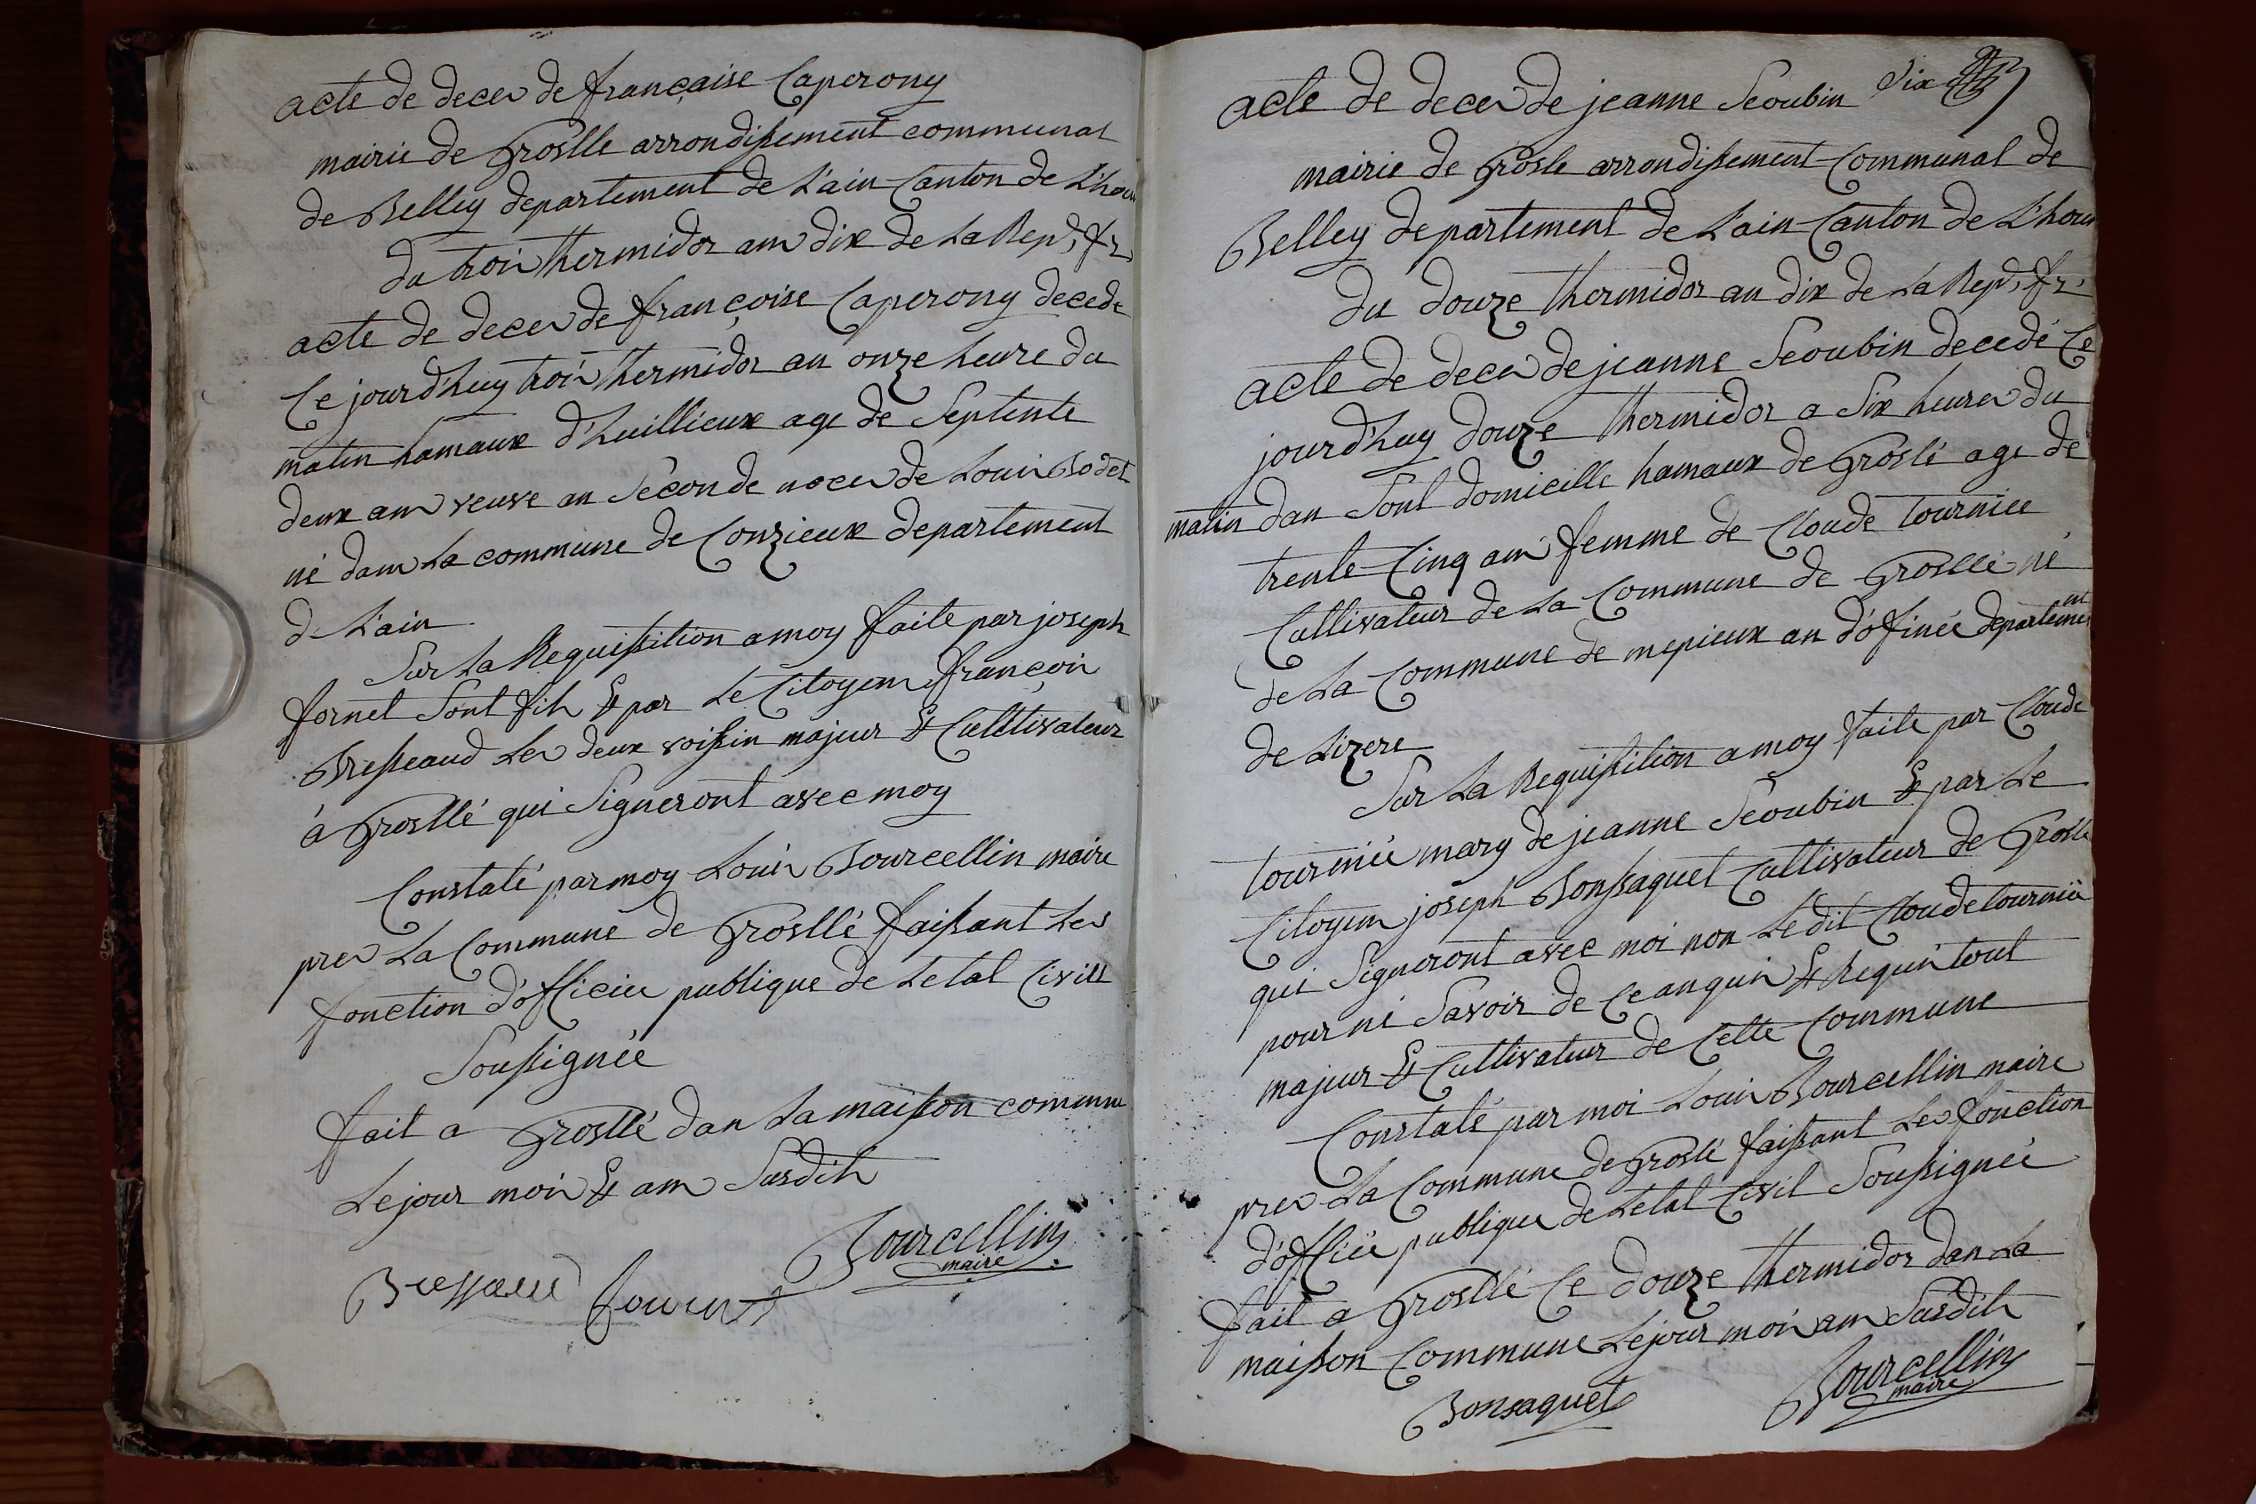 acte de deces de française Caperony
mairie de Groslle arrondissement communal
de Belley departement de L'ain Canton de Lhou
du trois thermidor ans dix de La Rep.e fr.
acte de deces de françoise Caperony decede
Ce jourd'huy trois thermidor an onze heure du
matin hamaux d'huillieux age de Septente
deux ans veuve an Séconde noces de Louis Bodet
né dans La commune de Conzieux departement
d L'ain
Sur La Requissition a moy faite par joseph
fornet Sont fils & par Le Citoyens françois
Bresseaud Les deux voissin majeur & Cultivateur
à Grosllé qui Signeront avec moy
Constaté par moy Louis Bourcellin maire
pres La Commune de Grosllé faissant Les
fonction d'officiee publique de Letat Civill
Soussignée
fait a Grosllé dan La maisson commune
Le jour mois & ans Susdits
Bourcellin
maire
Bressaud fornet
acte de deces de jeanne Seoubin Six
mairie de Grosle arrondissement Communal de
Belley departement de L'ain Canton de Lhou
du douze thermidor an dix de La Rep.e fr.
acte de deces de jeanne Seoubin decedé Ce
jourd'huy douze thermidor a Six heures du
matin dan Sont domicille hamaux de Groslé age de
trente Cinq ans femme de Cloude tourniee
Cultivateur de La Commune de Grosllé né
de La Commune de mepieux an dofinée departement
de Lizere
Sur La Requissition a moy faite par Cloude
tourniée mary de jeanne Seoubin & par Le
Citoyens joseph Bonssaquet Cultivateur de Grosle
qui Signeront avec moi non Le dit Cloude tourniée
pour ni Savoir de Ce anquis & Requis tout
majeur & Cultivateur de Cette Commune
Constaté par moi Louis Bourcellin maire
pres La Commune de Groslé faissant Les fonction
d'officiée publique de Letat Civil Soussignée
fait a Grosllé Ce douze thermidor dan La
maisson Commune Le jour mois ans Susdits
Bonsaquet
Bourcellin
maire